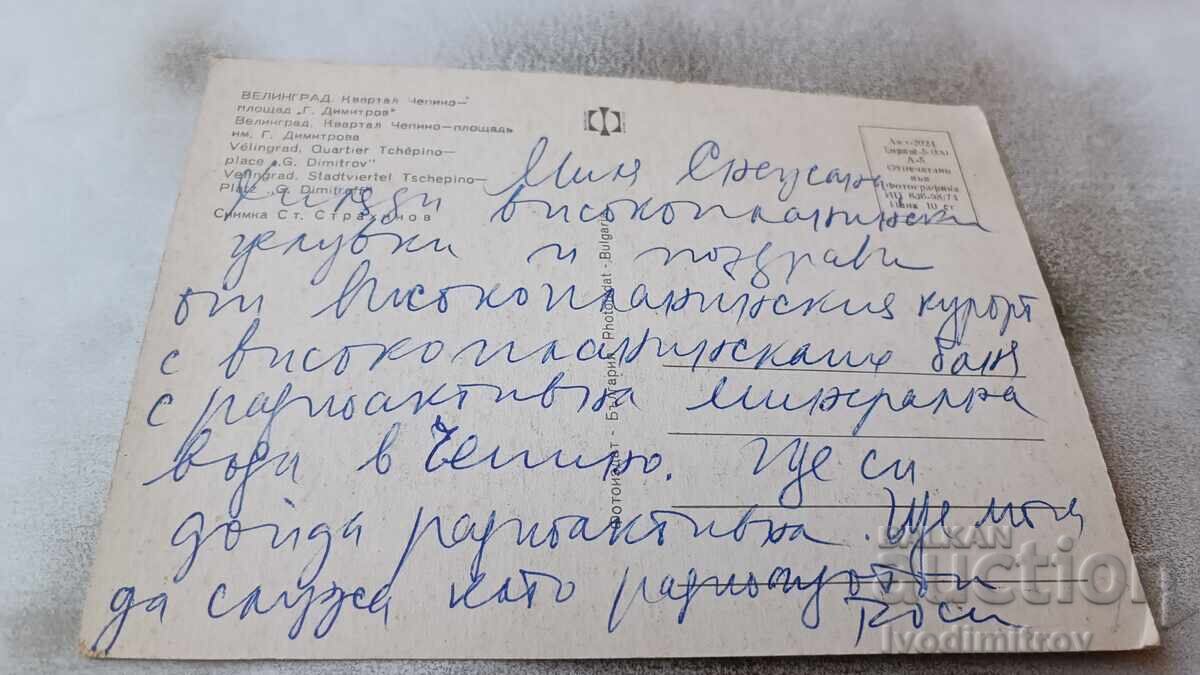 ВЕЛИНГРАД. Квартал Чепино—
площад „Г. Димитров"
Велинград. Квартал Чепино—площадь
им. Г. Димитрова
Vélingrad. Quartier Tchépino—
place „G. Dimitrov"
Velingrad. Stadtviertel Tschepino—
Platz „G. Dimitroff"
Снимка Ст. Страхонов
Фотоиздат - България Photoizdat - Bulgaria
А-5
Отпечатано
във
фотографика
Цена 10 ст
високопланински
целувки и поздрави
от високопланинския курорт
с високопланинската баня
с радиоактивна минерална
вода в Чепино. Ще си
дойда радиоактивна. Ще мога
да служа като
BALKAN
auction
Ivodimitrov